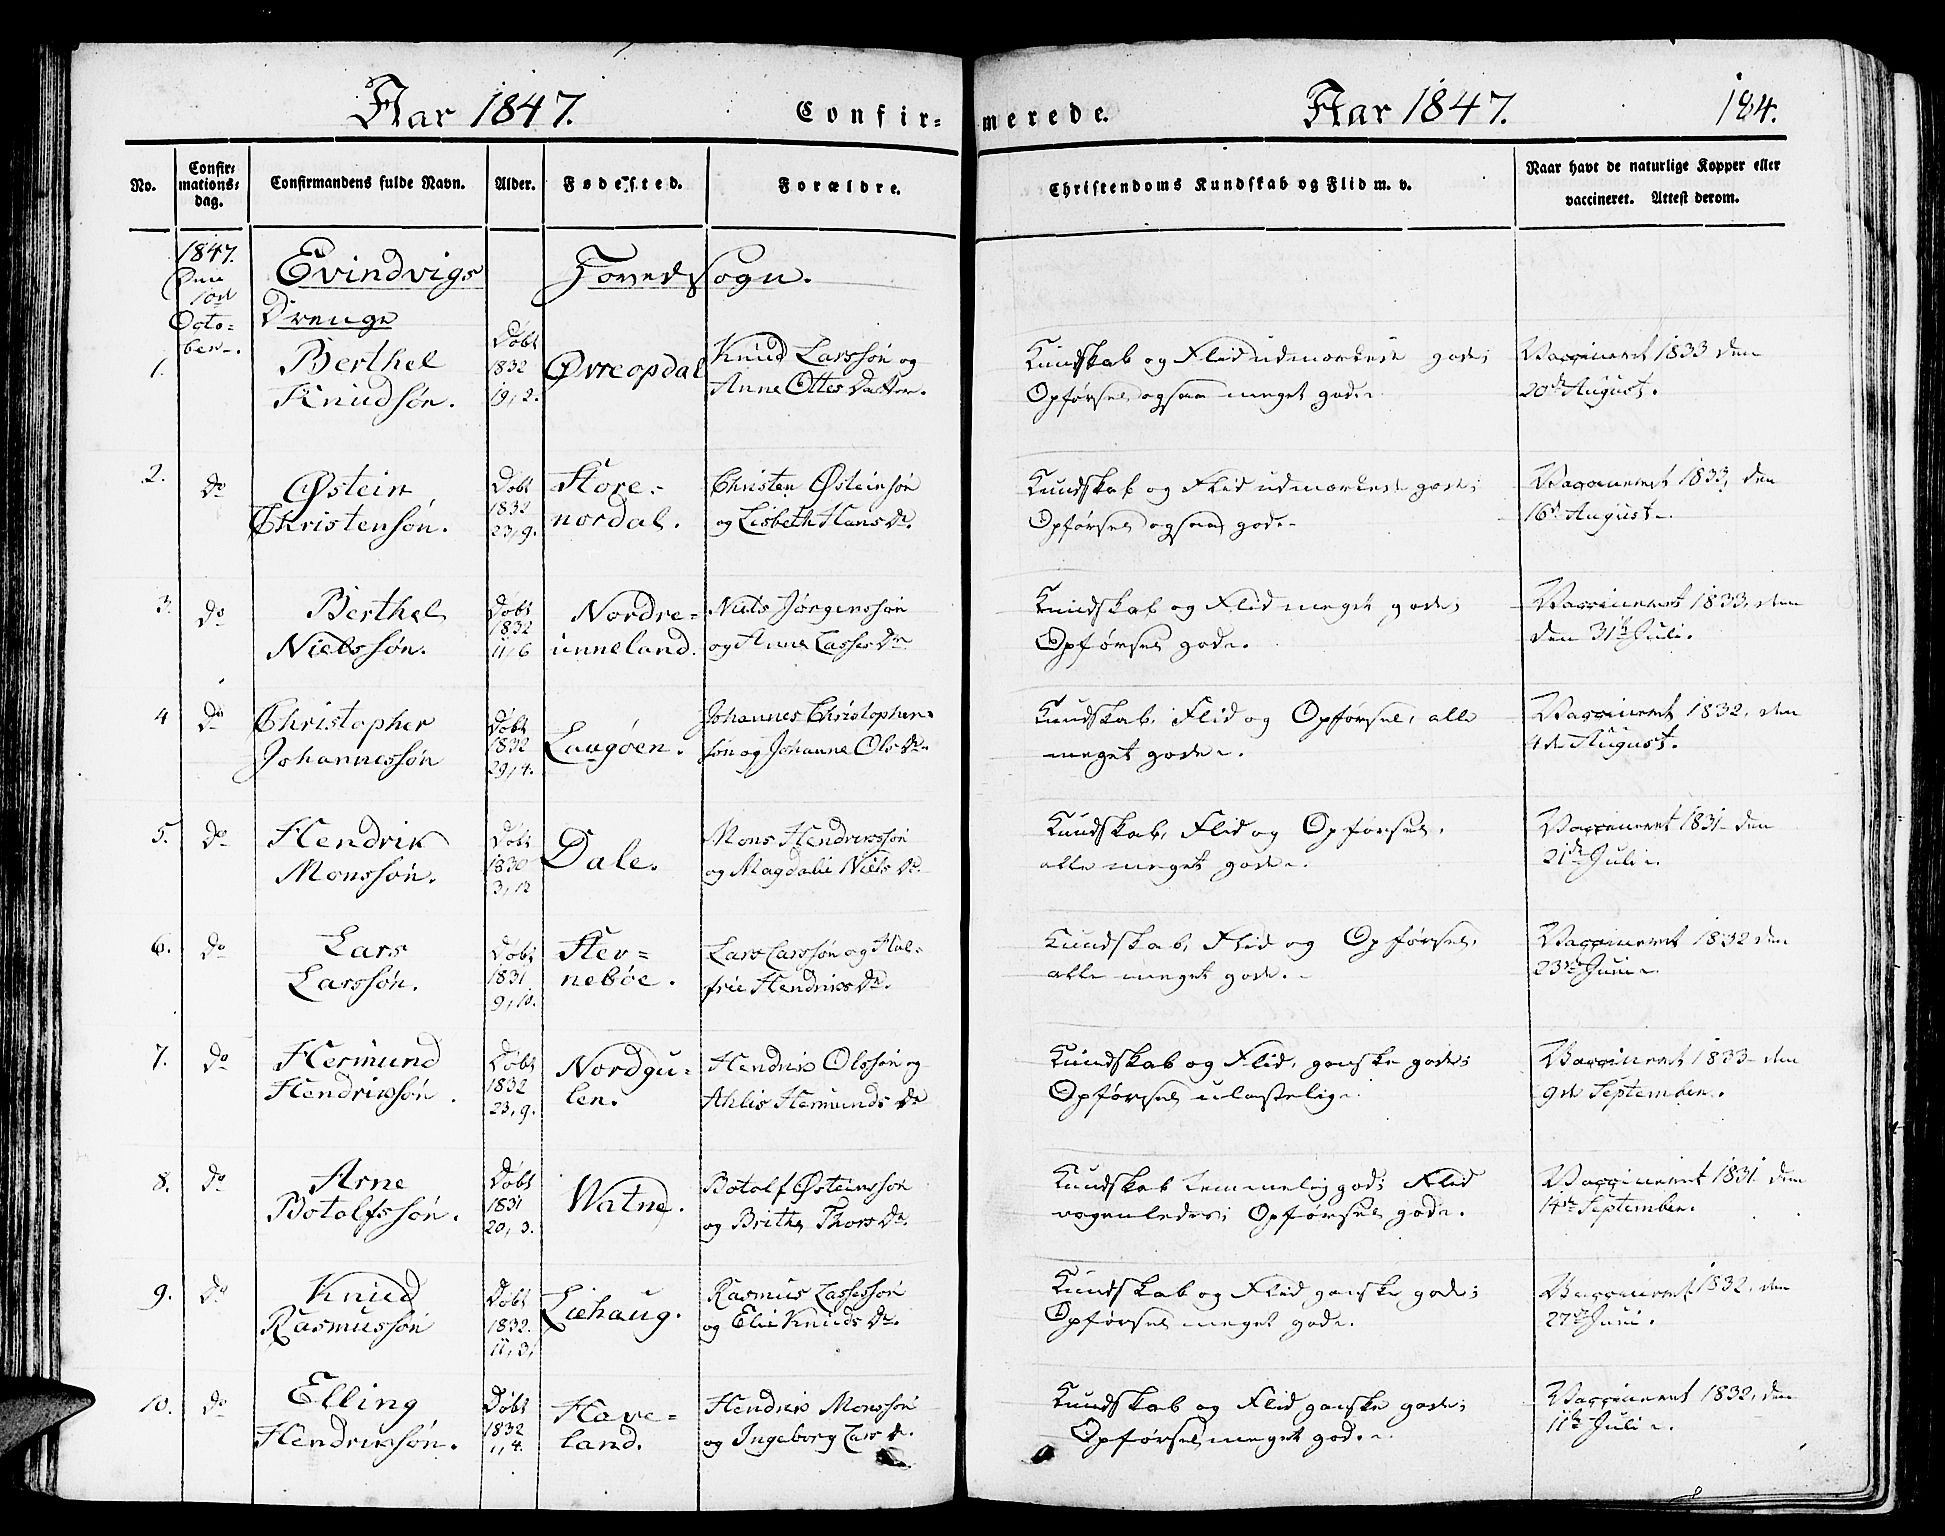 Aar 1847.
Confir=
merede.
Aar 1847.
184.
No.
Confir=
mations=
dag.
Confirmandens fulde Navn.
Alder.
Fødested.
Forældre.
Christendoms Kundskab og Flid m. v.
Naar havt de naturlige Kopper eller
vaccineret. Attest derom.
1847.
Den
10de
Octo=
ber.
Evindvigs Hovedsogn.
Drenge
1.
Berthel
Knudsøn.
Døbt
1832
19/2.
Øvreopdal
Knud Larssøn og
Anne Ottes Datter.
Kundskab og Flid udmærkede gode;
Opførsel ogsaa meget gode.
Vaccineret 1833 den
20de August.
2.
Do
Østein
Christensøn.
Døbt
1832
23/9.
Flore=
nordal.
Christen Østeinsøn
og Lisbeth Hans Dr.
Kundskab og Flid udmærkede gode;
Opførsel ogsaa gode.
Vaccineret 1833, den
16de August.
3.
Do
Berthel
Nielssøn.
Døbt
1832
11/6
Nordre=
unneland.
Niels Jørgenssøn
og Anne Lasses Dr.
Kundskab og Flid meget gode;
Opførsel gode.
Vaccineret 1833, den
den 31te Juli.
4
Do
Christopher
Johannessøn
Døbt
1832
29/4.
Laugøen.
Johannes Christophers=
søn og Johanne Ols Dr.
Kundskab, Flid og Opførsel, alle
meget gode.
Vaccineret 1832, den
4de August.
5.
Do
Hendrik
Monssøn.
Døbt
1830
3/12
Dale.
Mons Hendrikssøn
og Magdalie Niels Dr.
Kundskab, Flid og Opførsel,
alle meget gode.
Vaccineret 1831 den
21de Juli.
6.
Do
Lars
Larssøn.
Døbt
1831
9/10.
Hev=
nebøe.
Lars Larssøn og Hal=
frie Hendriks Dr.
Kundskab, Flid og Opførsel,
alle meget gode.
Vaccineret 1832 den
23de Juni.
7.
Do
Hermund
Hendriksøn.
Døbt
1832
23/9.
Nordgu=
len.
Hendrik Olssøn og
Ahlis Hermunds Dr
Kundskab og Flid, ganske gode;
Opførsel ulastelig.
Vaccineret 1833 den
9de September.
8.
Do
Arne
Botolfssøn.
Døbt
1831
20/3.
Watne.
Botolf Østeinssøn
og Brithe Thors Dr.
Kundskab temmelig god; Flid
nogenledes; Opførsel gode.
Vaccineret 1831 den
14de September.
9.
Do
Knud
Rasmussøn
Døbt
1832.
11/3,
Liehaug.
Rasmus Lassessøn
og Elie Knuds Dr.
Kundskab og Flid ganske gode;
Opførsel meget gode.
Vaccineret 1832, den
27de Juni.
10.
Do
Elling
Hendriksøn.
Døbt
1832
1/4.
Have=
land.
Hendrik Monssøn
og Ingeborg Lars D.
Kundskab og Flid ganske gode;
Opførsel meget gode.
Vaccineret 1832, den
11te Juli.